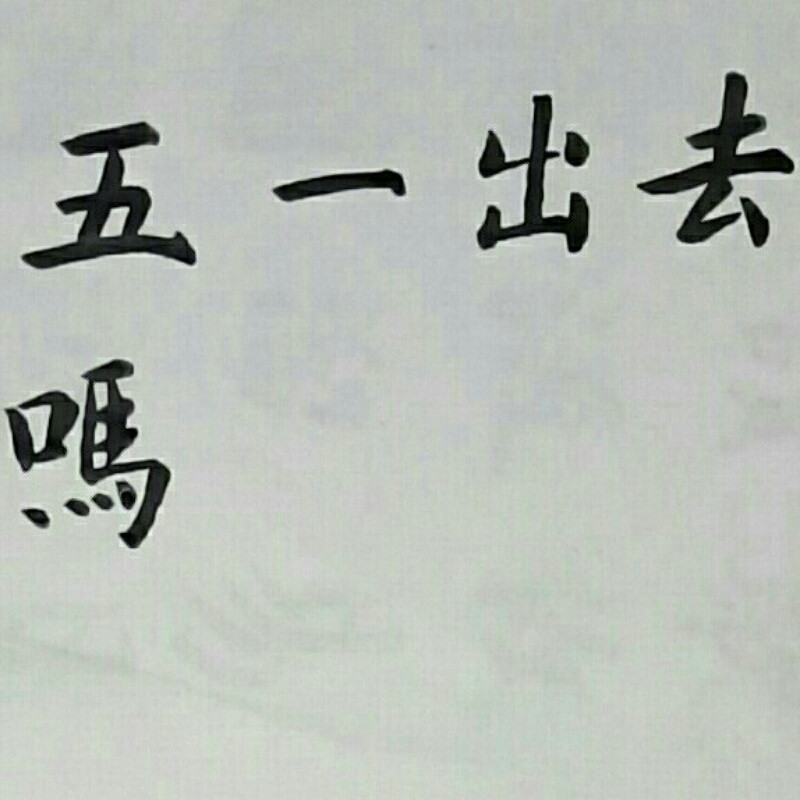 五一出去
嗎